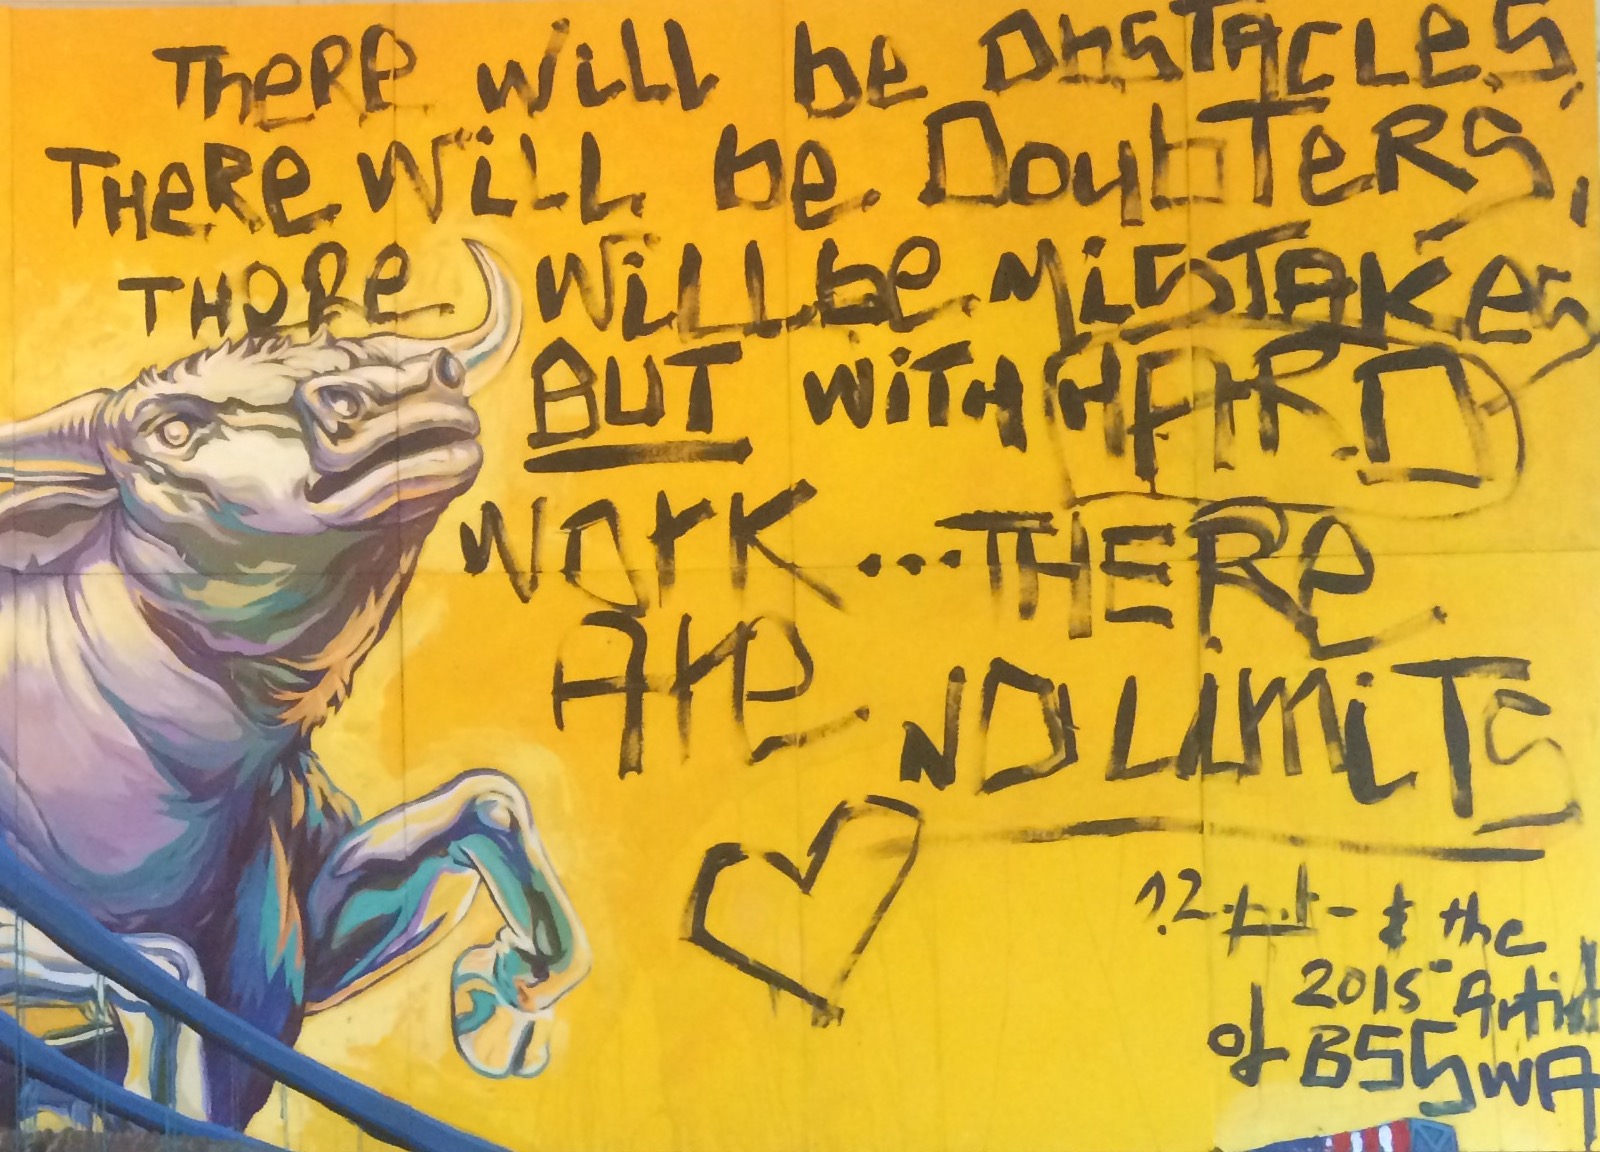 There will be Obstacles,
There will be. Doubters,
There will be. Mistakes,
BUT with HARD
Work ...There
Are NO Limits
& the
2015 Artist
of BSSWA